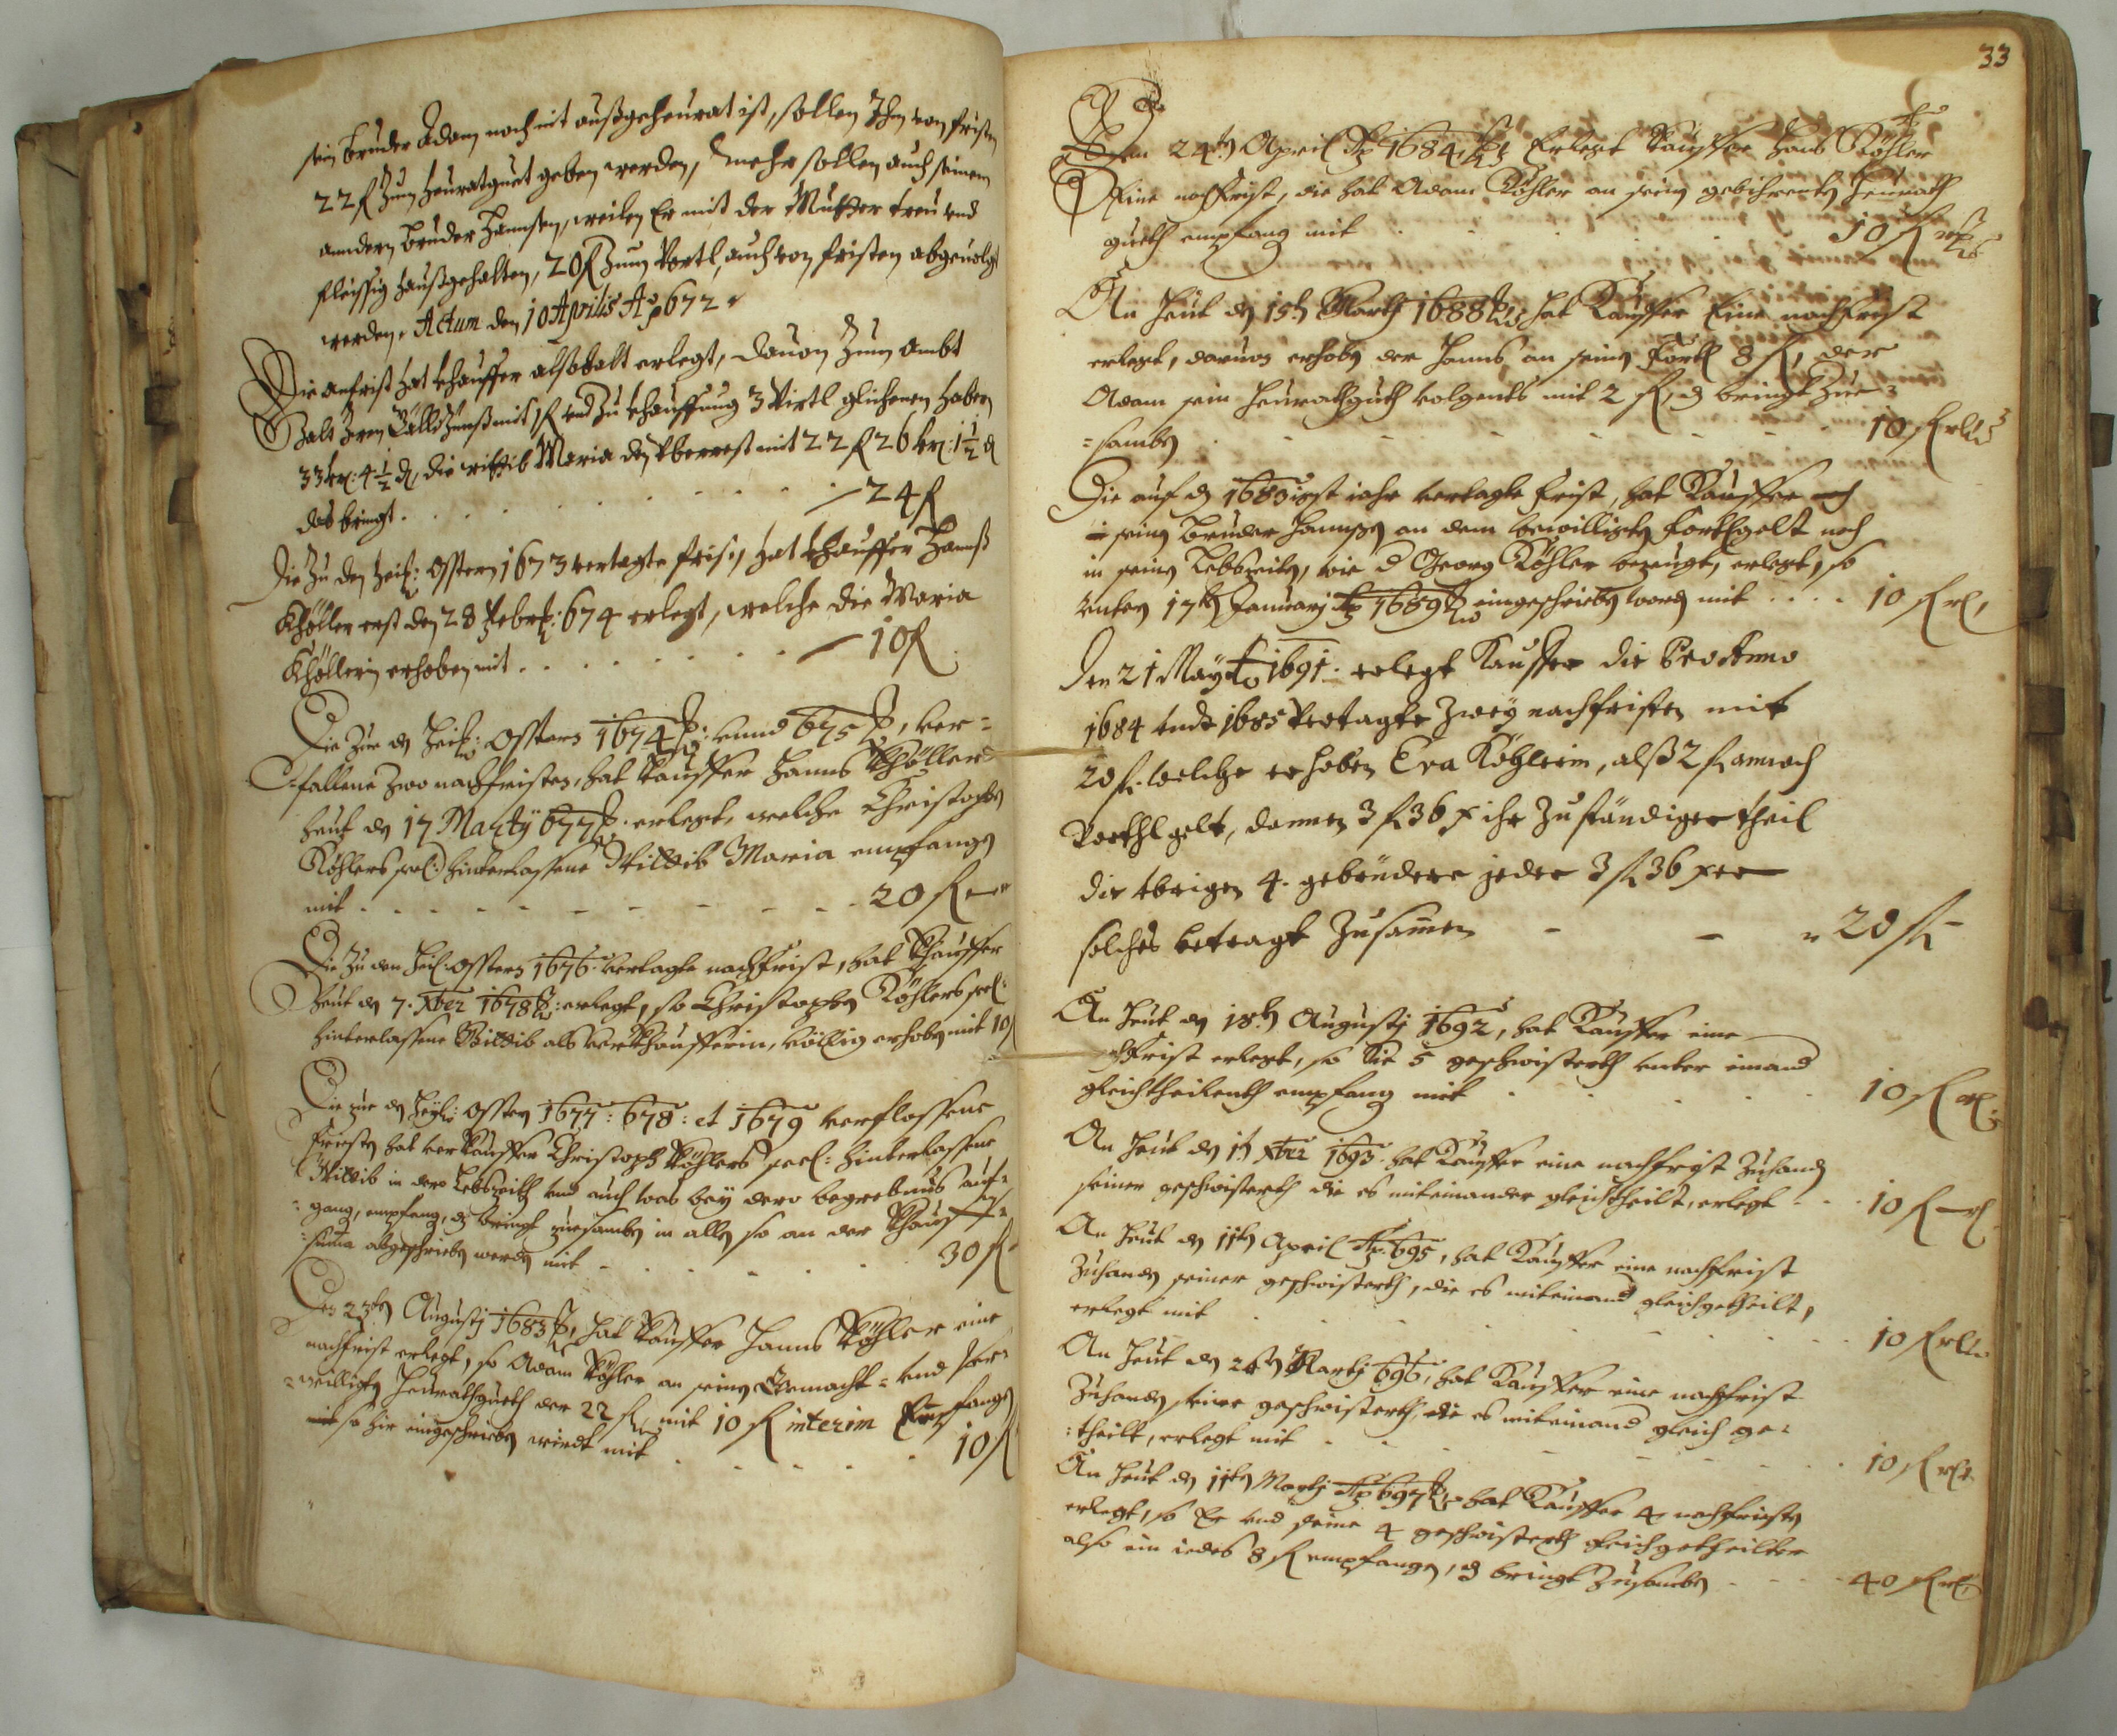 sein Bruder Adam noch nit außgeheurat ist, sollen Ihm von fristen
22 f zum heuratguet geben werden, mehr sollen auch seinem
anndern Bruder Hannsen, weilen Er mit der Mutter treu und
fleissig haußgehalten, 20 f zum Vortl, auch von fristen abgeuolgt
werden. Actum den 10 Aprilis Ao 672
Die anfrist hat khauffer alßbalt erlegt, dauon zum Ambt
mit 1 f und zu khauffung 3 Virtl glichenen Habern
33 kr: 4 1/2 d, die wittib Maria den Yberrest mit 22 f 26 kr: 1 1/2 d
das bringt . . . . 24 f
Die zu den heil: Ostern 1673 vertagte frist, hat khauffer Hanß
Khöller erst den 28 Febr: 674 erlegt, welche die Maria
Khöllerin erhoben mit . . . . 10 f
Die zue den Heil: Ostern 1674 vnnd 675, ver=
=fallene zwo nachfristen, hat Kauffer Hanns Khöller
heut den 17 Martij 677 erlegt, welche Christophen
Köhlers seel: hinterlassene Wittib Maria empfangen
mit . . . . 20 f
Die zu den Heil: Ostern 1676 vertagte nachfrist, hat Khauffer
heut den 7. Xber 1678 erlegt, so Christophen Köhlers seel:
hinterlassene Wittib als verkhaufferin, völlig erhoben mit 10 f
Die zue den Heyl: Ostern 1677: 678: et 1679 verflossene
fristen hat verkauffer Christoph Köhlers seel: hinterlassene
Wittib in dero Lebszeith und auch was bey dero begrebnus auf=
=gang, empfang, dz bringt zuesamben in allen so an der Khauff=
=summa abgeschrieben werden mit . . . . 30 f
Den 23ten Augustj 1683, hat Kauffer Hanns Köhler eine
nachfrist erlegt, so Adam Köhler an seinen Vermacht= und ver=
=willigten Heurathgueth der 22 f, mit 10 f interim Empfangen
so hir eingeschrieben wirdt mit . . . . 10 f
33
Den 24ten April Ao 1684 Erlegt Kauffer Hans Köhler
Eine nachfrist, die hat Adam Köhler an seinen gebihrenten Heurath
gueth empfang mit . . . . 10 f
An Heut den 15ten Martj 1688 hat Kauffer Eine nachfrist
erlegt, daruon erhoben der Hanns an seinen Forthl 8 f, der
Adam sein Heurathguth volgents mit 2 f, dz bringt Zue=
=samben . . . . 10 f
Die auf den 1683ist iahr vertagte frist, hat Kauffer
seinen Bruder Hannsen an dem bewilligten Forthgelt noch
in seinen Lebszeiten, wie d Georg Köhler bezeugt, erlegt, so
unten 17ten Januarj Ao 1689 eingeschrieben worden mit . . . . 10 f
Den 21 Maÿ Ao 1691. erlegt Kauffer die Pro Anno
1684 unds 1685 Vertagte Zweÿ nachfristen mit
20 f. welche erhoben Eva Köhlerin, alß 2 f annoch
Vorthl gelt, dannen 3 f 36 x ihr Zuständiger theil
die Ybrigen 4. gebrüdere jeder 3 f 36 xer
solches betragt Zusamen - - 20 f
An Heut den 18ten Augustj 1692, hat Kauffer eine
nachfrist erlegt, so Die 5 geschwisterth unter einand
gleichtheilenth empfang mit . . . . 10 f
An Heut den 1ten Xber 1693. hat Kauffer eine nachfrist Zuhanden
seiner geschwisterth die es miteinander gleichtheilt, erlegt . . 10 f
An Heut den 11ten April Ao 695, hat Kauffer eine nachfrist
Zuhanden seiner geschwisterth, die es miteinand gleichgetheilt,
erlegt mit . . . . 10 f
An Heut den 26ten Martj 696, hat Kauffer eine nachfrist
Zuhanden seiner geschwisterth, die es miteinand gleich ge=
=theilt, erlegt mit . . . . 10 f
An Heut den 11ten Martj Ao 697 hat Kauffer 4 nachfristen
erlegt, so Er und seine 4 geschwisterth gleichgetheilter
also ein iedes 8 f empfangen, dz bringt Zusamben . . . . 40 f